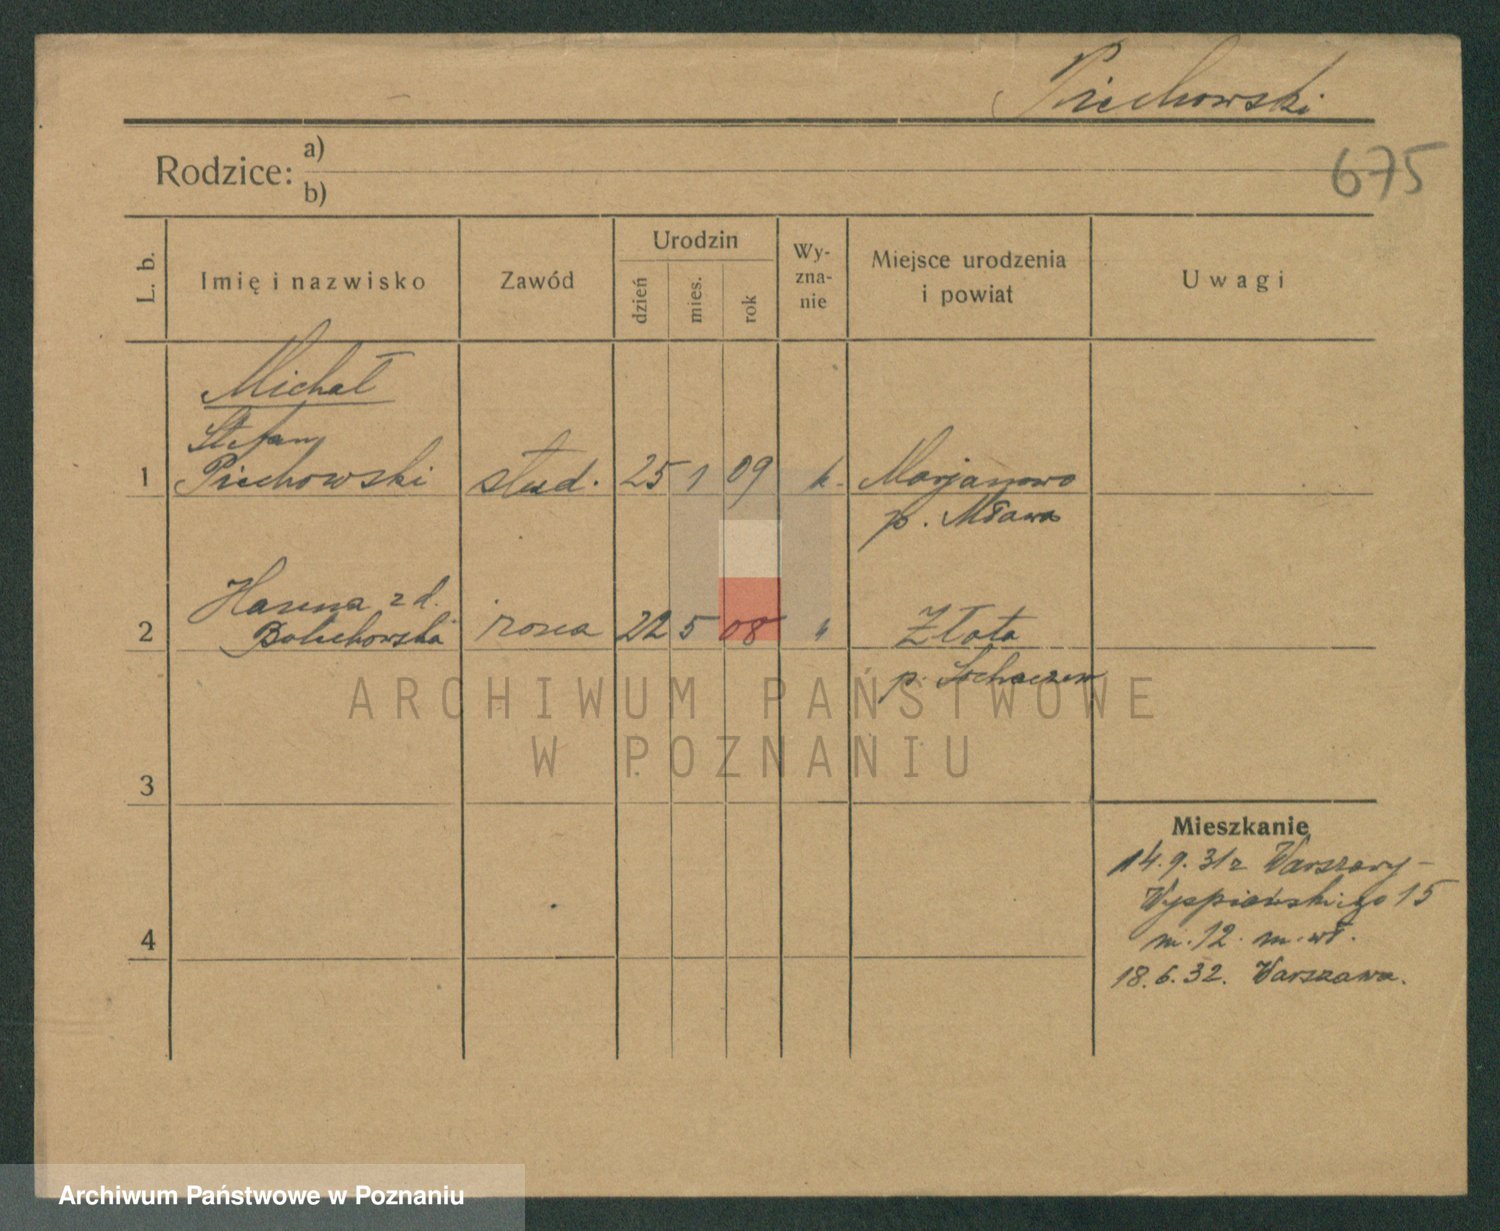 Piechowski
675
Rodzice: a)
b)
L. b.
Imię i nazwisko
Zawód
Urodzin
dzień
mies.
rok
Wy-
zna-
nie
Miejsce urodzenia
i powiat
Uwagi
Michał
Stefan
1 Piechowski stud. 25 1 09 k. Marjanowo
p. Mława
Hanna z d.
2 żona 22 5 08 " Złota
p. Sochaczew
ARCHIWUM PAŃSTWOWE
W POZNANIU
3
4
Mieszkanie
14.9.31 z Warszawy -
Wyspiańskiego 15
m. 12. m. wł.
18.6.32. Warszawa.
Archiwum Państwowe w Poznaniu